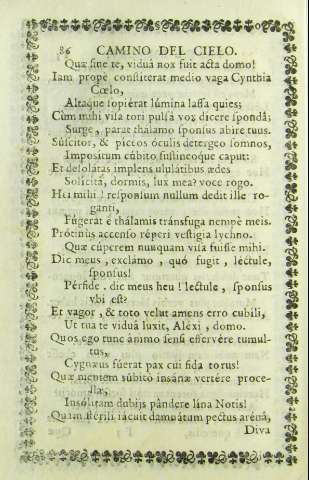 86 CAMINO DEL CIELO.
Quæ sine te, viduâ nox fuit acta domo!
Iam propè constiterat medio vaga Cynthia
Cœlo,
Altaque sopierat lúmina lassa quies;
Cùm mihi visa tori pulsâ vox dicere spondâ;
Surge, parat thalamo sponsus abire tuus.
Súscitor, & pictos óculis detergeo somnos,
Impositum cúbito sustineoque caput:
Et desolátas implens ululátibus ædes
Solicitâ, dormis, lux mea? voce rogo.
Hei mihi! responsum nullum dedit ille ro-
ganti,
Fúgerat è thálamis tránsfuga nempè meis.
Prótinùs accenso réperi vestigia lychno.
Quæ cúperem nunquam visa fuisse mihi.
Dic meus, exclámo, quó fugit, léctule,
sponsus!
Pérfide. dic meus heu! lectule, sponsus
vbi est?
Et vagor, & toto velut amens erro cubili,
Ut tua te viduâ luxit, Aléxi, domo.
Quos ego tunc ánimo sensi effervére tumul-
tus,
Cygnæus fúerat pax cui fida torus!
Quæ mentem súbitò insánæ vertére proce-
llæ,
Insólitam dubijs pándere lina Notis!
Quàm stérili iácuit damnátum pectus arénâ,
Diva